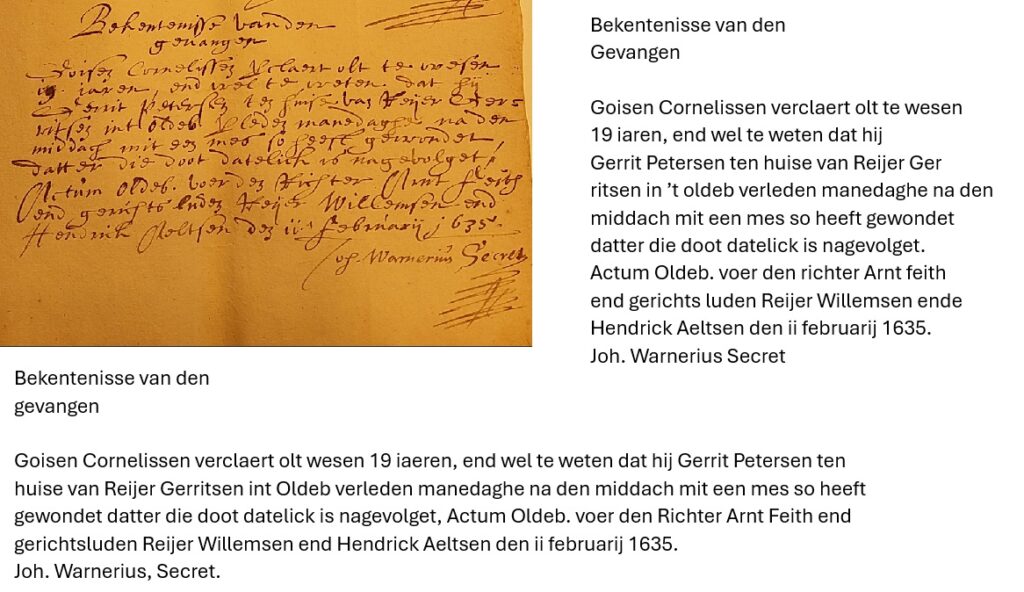 Bekentenisse van den
gevangen
Goisen Cornelissen verclaert olt te wesen
19 iaren, end wel te weten dat hij
Gerrit Petersen ten huise van Reijer Gerr
ritsen int oldeb verleden manedaghe na den
middach mit een mes so heeft gewondet
datter die doot datelick is nagevolget,
Actum Oldeb. voer den Richter Arnt feith
end gerichts luden Reijer Willemsen end
Hendrick Aeltsen den ii februarij 1635.
Joh. Warnerius Secret
Bekentenisse van den
Gevangen
Goisen Cornelissen verclaert olt te wesen
19 iaren, end wel te weten dat hij
Gerrit Petersen ten huise van Reijer Ger
ritsen in ’t oldeb verleden manedaghe na den
middach mit een mes so heeft gewondet
datter die doot datelick is nagevolget.
Actum Oldeb. voer den richter Arnt feith
end gerichts luden Reijer Willemsen ende
Hendrick Aeltsen den ii februarij 1635.
Joh. Warnerius Secret
Bekentenisse van den
gevangen
Goisen Cornelissen verclaert olt wesen 19 iaeren, end wel te weten dat hij Gerrit Petersen ten
huise van Reijer Gerritsen int Oldeb verleden manedaghe na den middach mit een mes so heeft
gewondet datter die doot datelick is nagevolget, Actum Oldeb. voer den Richter Arnt Feith end
gerichtsluden Reijer Willemsen end Hendrick Aeltsen den ii februarij 1635.
Joh. Warnerius, Secret.